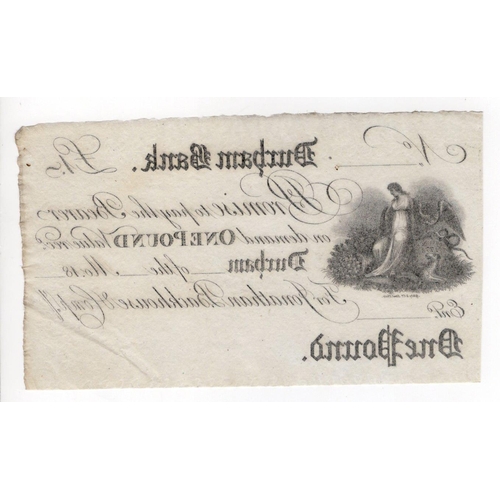 No. ______ Durham Bank. £1.
I Promise to pay the Bearer
on demand ONE POUND Value recd.
Durham ______ of the ______
For Jonathan Backhouse & Compy.
Entd. ______
One Pound.